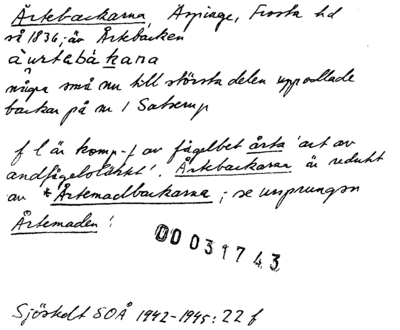 Årtebackarna, Äspinge, Frosta hd
så 1836; äv Årtebacken
àurtəbákana
några små nu till största delen uppodlade
backar på nr 1 Satserup
f l är komp-f av fågelbet årta 'art av
andfågelsläkt'. Årtebackarna är redukt
av *Årtemadbackarna; se ursprungsn
Årtemaden!
00031743
Sjöstedt SOÅ 1942-1945:22 f